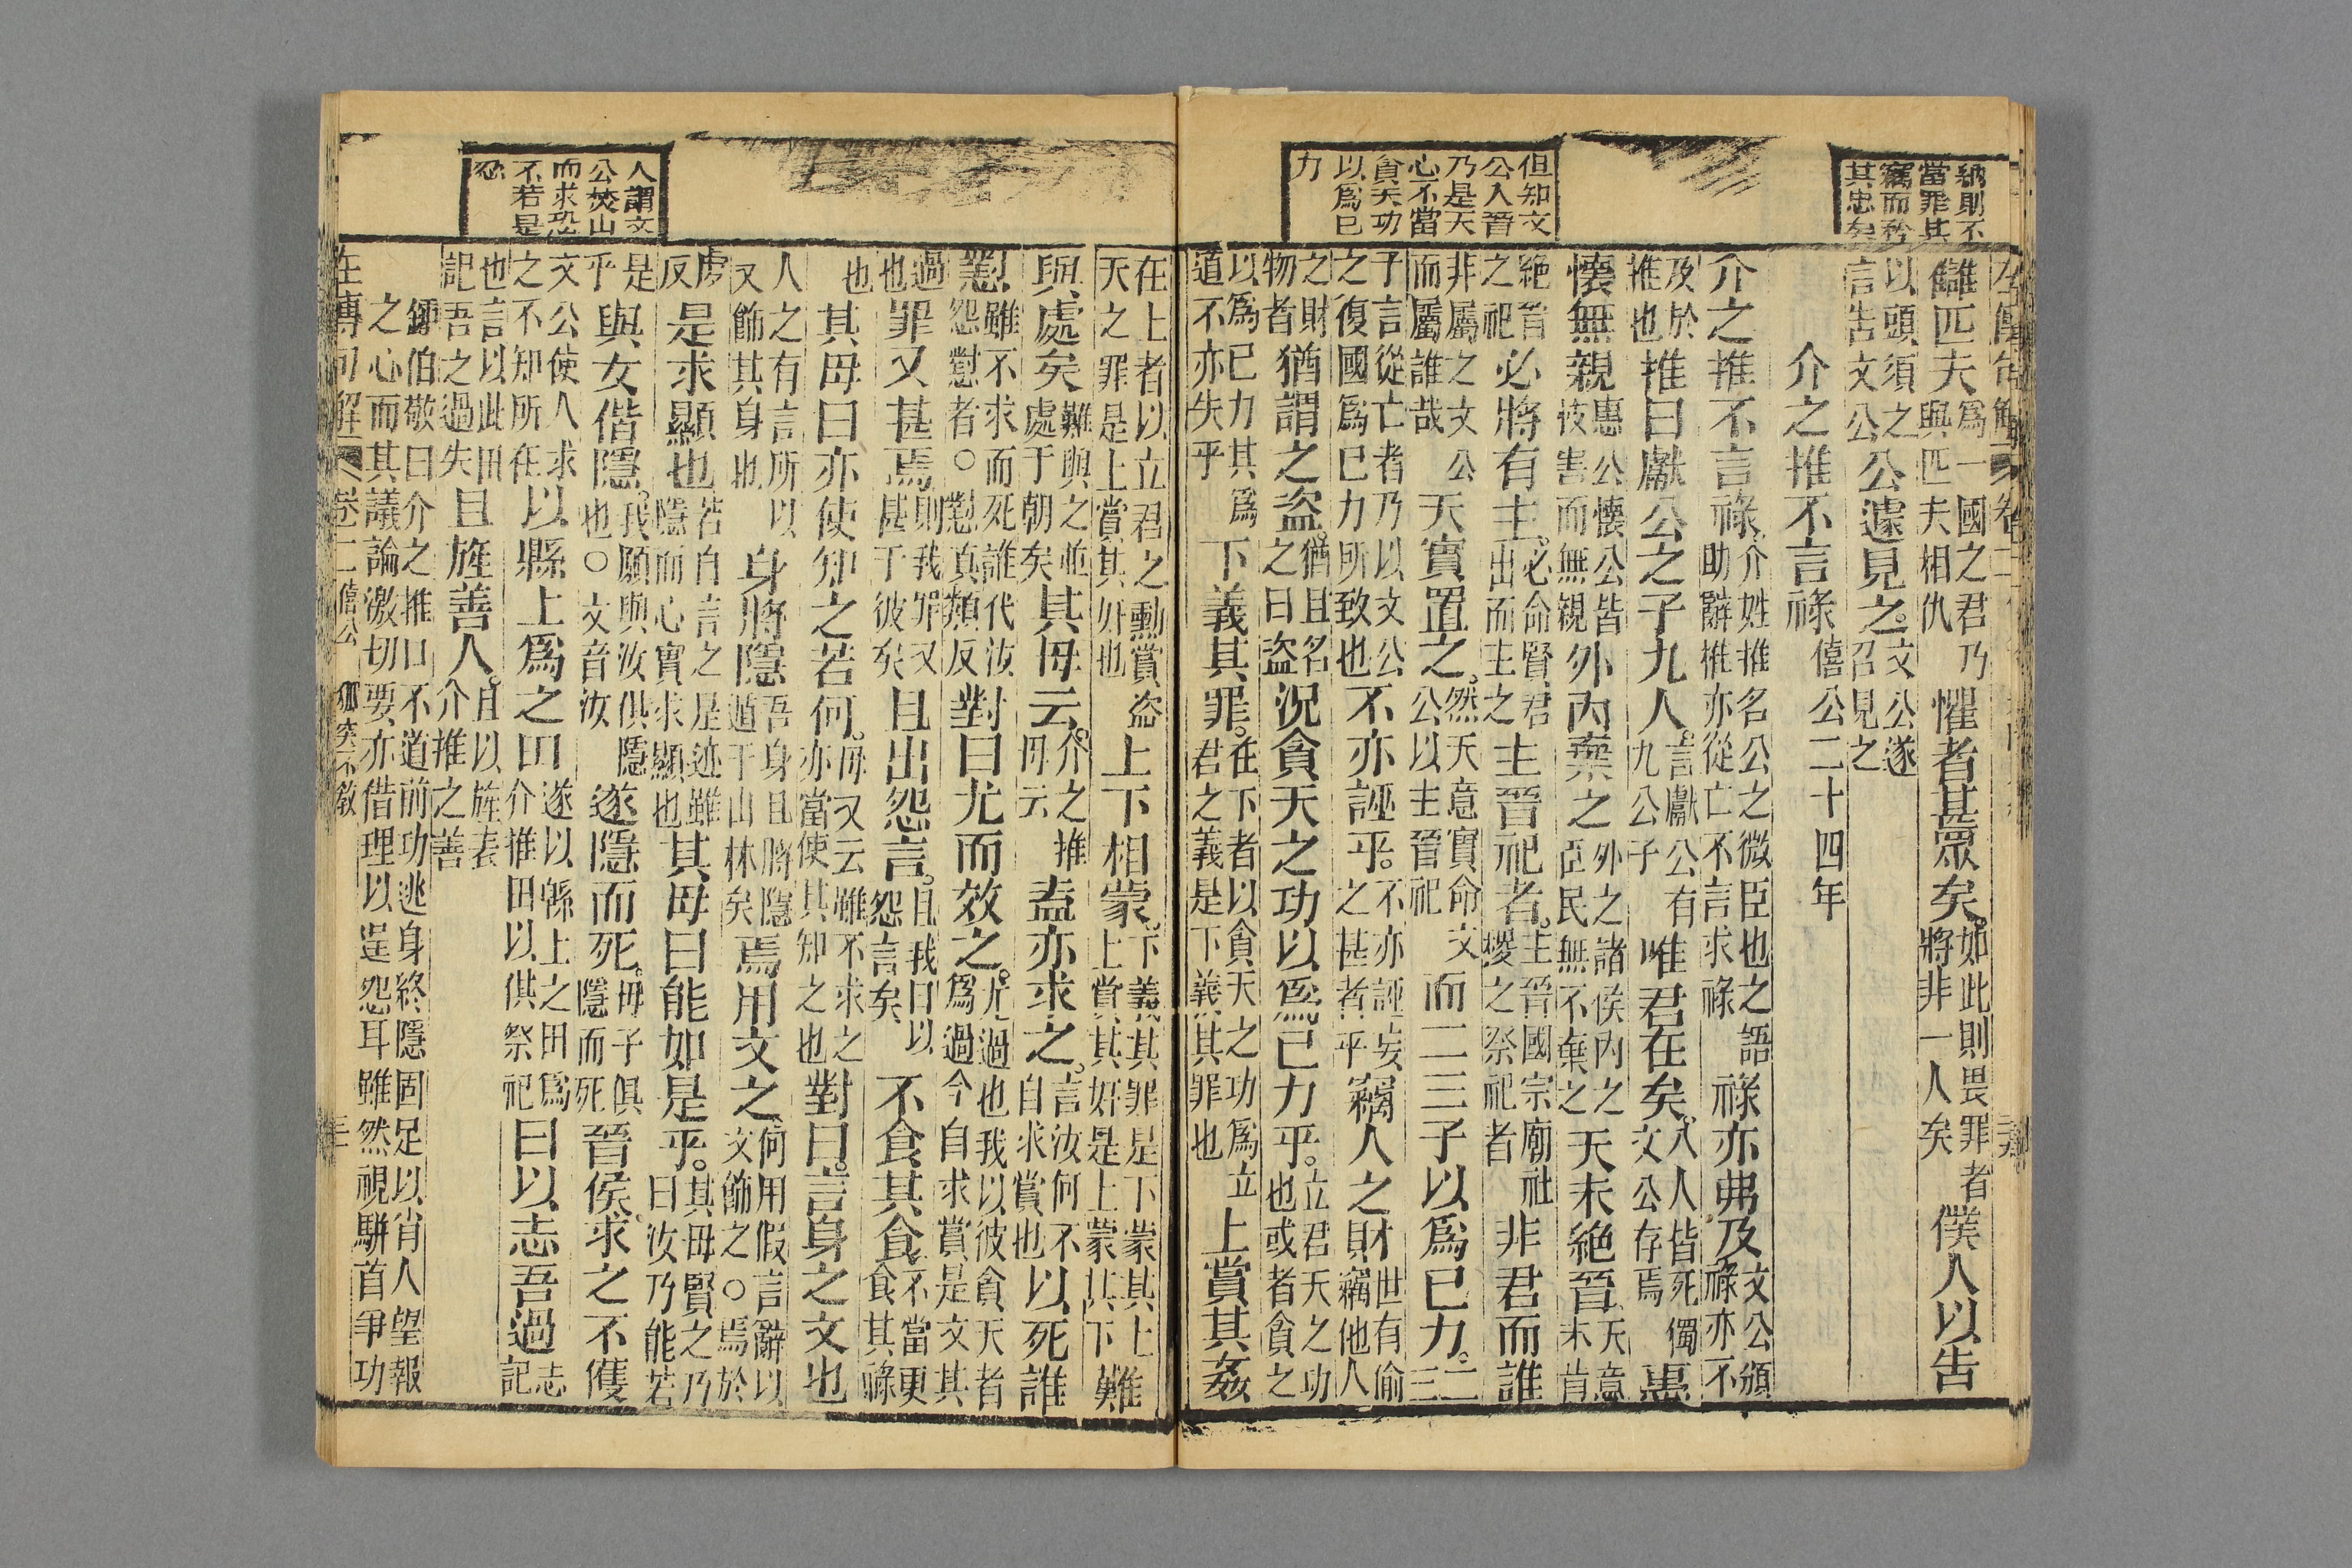 納則不
當罪其
竊而矜
其忠矣
讎匹夫爲一國之君乃與匹夫相仇懼者甚眾矣如此則畏罪者將非一人矣僕人以告
以頭須之言告文公公遽見之文公遂召見之
介之推不言祿僖公二十四年
介之推不言祿介姓推名公之微臣也之語助辭推亦從亡不言求祿祿亦弗及文公頒祿亦不
及於推也推曰獻公之子九人言獻公有九公子唯君在矣八人皆死獨文公存焉惠
懷無親惠公懷公皆忮害而無親外內棄之外之諸侯內之臣民無不棄之天未絕晉天意未肯
絕晉之祀必將有主必命賢君出而主之主晉祀者主晉國宗廟社稷之祭祀者非君而誰
但知文
公入晉
乃是天
心不當
貪天功
以爲已
力
非屬之文公而屬誰哉天實置之然天意實命文公以主晉祀而二三子以爲已力二三
子言從亡者乃以文公之復國爲已力所致也不亦誣乎不亦誣妄之甚者乎竊人之財世有偷竊他人
之財物者猶謂之盜猶且名之曰盜況貪天之功以爲已力乎立君天之功也或者貪之
以爲已力其爲道不亦失乎下義其罪在下者以貪天之功爲立君之義是下義其罪也上賞其姦
在上者以立君之勳賞盜天之罪是上賞其奸也上下相蒙下義其罪是下蒙其上上賞其奸是上蒙其下難
與處矣難與之並處于朝矣其母云介之推母云盍亦求之言汝何不自求賞也以死誰
懟雖不求而死誰代汝怨懟者○懟眞類反對曰尤而效之尤過也我以彼貪天者爲過今自求賞是文其
過也罪又甚焉則我罪又甚于彼矣且出怨言且我曰以怨言矣不食其食不當更食其祿
也其母曰亦使知之若何母又云雖不求之亦當使其知之也對曰言身之文也
人之有言所以又飾其身也身將隱吾身且將隱遁于山林矣焉用文之何用假言辭以文飾之○焉於
虔反是求顯也若自言之是迹雖隱而心實求顯也其母曰能如是乎其母賢之乃曰汝乃能若
人謂文
公焚山
而求恐
不若是
忍
是乎與女偕隱我願與汝俱隱也○文音汝遂隱而死母子俱隱而死晉侯求之不獲
文公使人求之不知所在以縣上爲之田遂以緜上之田爲介推田以供祭祀曰以志吾過志記
也言以此田記吾之過失且旌善人且以旌表介推之善
鍾伯敬曰介之推口不道前功逃身終隱固足以消人望報
之心而其議論激切要亦借理以逞怨耳雖然視駢首爭功
左傳句解 卷二 僖公 狐突不教